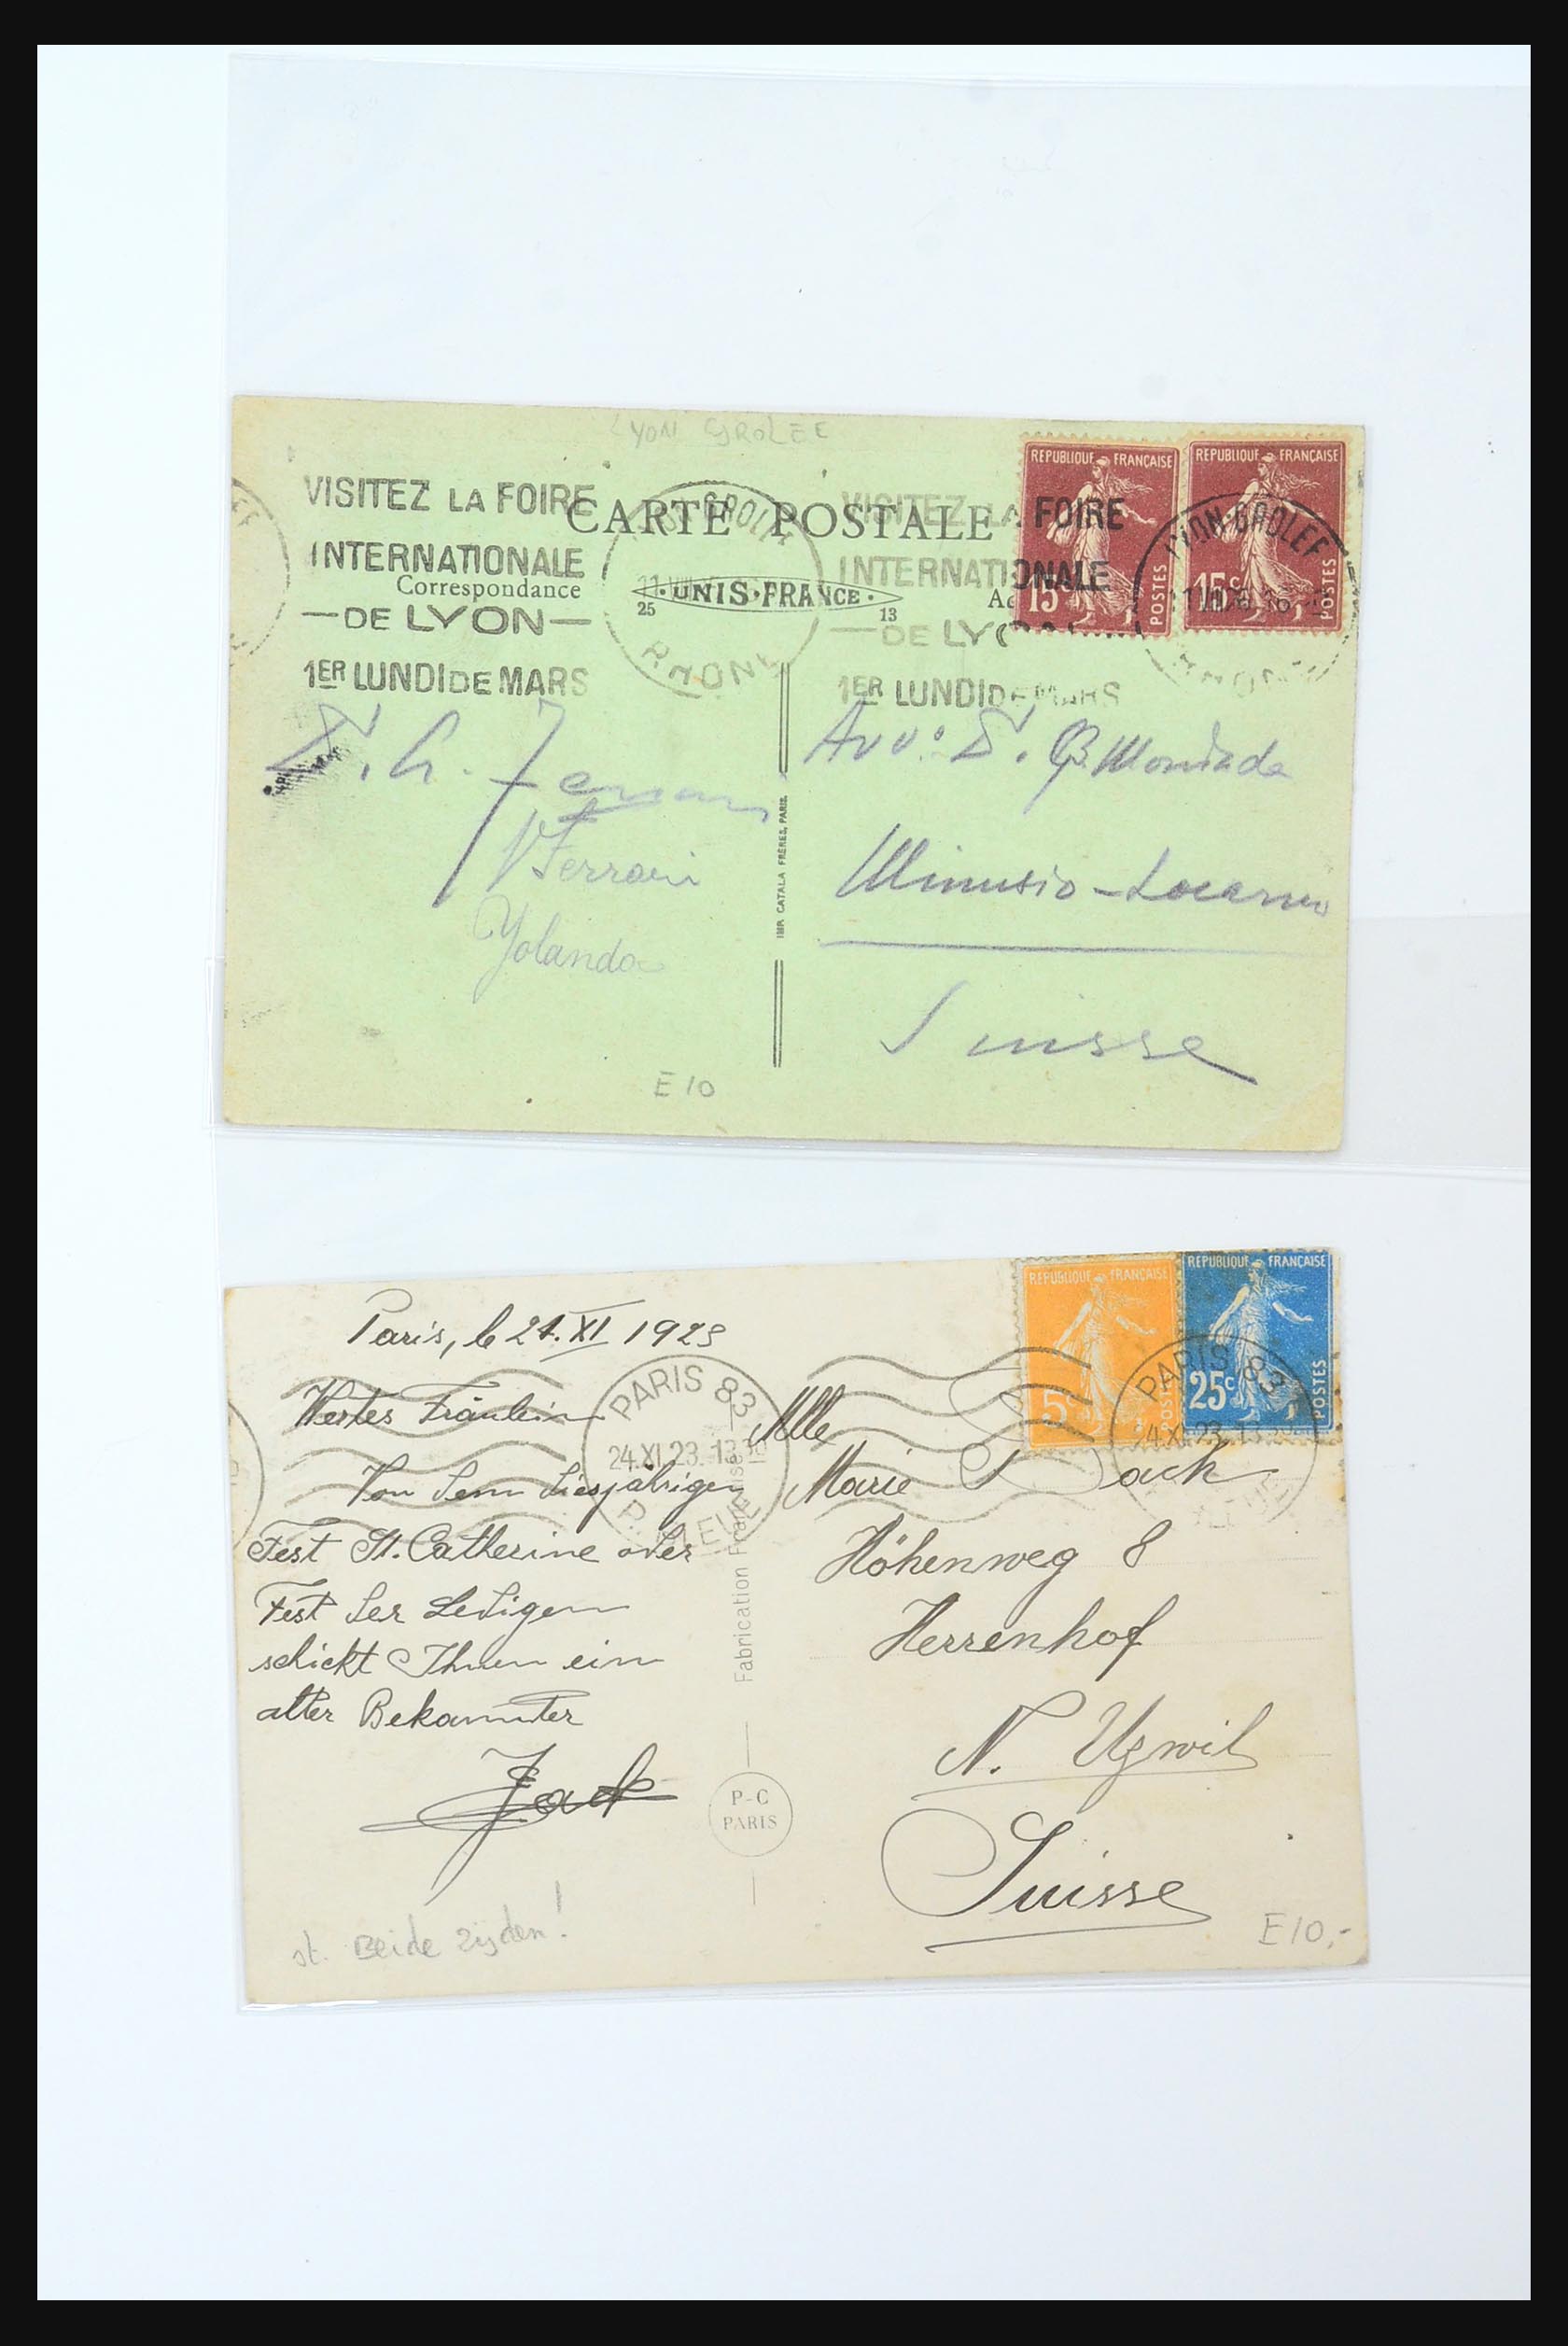 LYON GROLÉE
VISITEZ LA FOIRE
INTERNATIONALE
—DE LYON—
1ER LUNDI DE MARS
CARTE POSTALE
Correspondance
25 ·UNIS·FRANCE· 13
RHONE
VISITEZ LA FOIRE
INTERNATIONALE
—DE LYON
1ER LUNDI DE MARS
REPUBLIQUE FRANÇAISE
15c POSTES
REPUBLIQUE FRANÇAISE
15c POSTES
LYON-GROLEE
Ferrari
Yolanda
IMP. CATALA FRERES, PARIS.
Avv:
Minusio-Locarno
Suisse
E 10
Paris, le 24.XI 1923
Wertes Fräulein
Von dem diesjährigen
Fest St. Catherine oder
Fest der Ledigen
schickt Ihnen ein
alter Bekannter
Jack
st. Beide zijden!
PARIS 83
24.XI.23. 13
Fabrication Française
P-C
PARIS
REPUBLIQUE FRANÇAISE
5c POSTES
REPUBLIQUE FRANÇAISE
25c POSTES
PARIS 83
24.XI.23. 13
Mlle
Marie
Höhenweg 8
Herrenhof
N. Uzwil
Suisse
E10,-